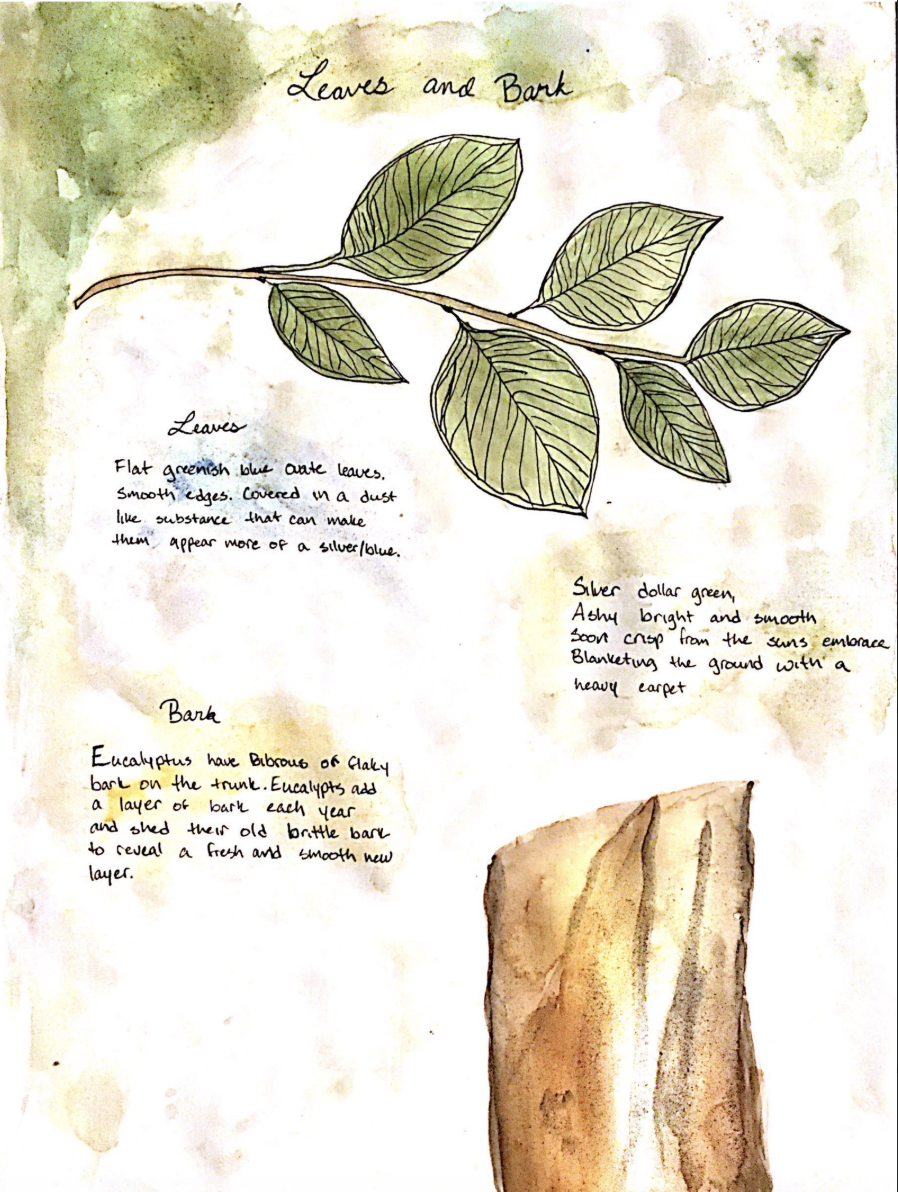 Leaves and Bark
Leaves
Flat greenish blue ovate leaves.
Smooth edges. Covered in a dust
like substance that can make
them appear more of a silver/blue.
Silver dollar green,
Ashy bright and smooth
Soon crisp from the suns embrace
Blanketing the ground with a
heavy carpet
Bark
Eucalyptus have Bibrous or flaky
bark on the trunk. Eucalypts add
a layer of bark each year
and shed their old brittle bark
to reveal a fresh and smooth new
layer.